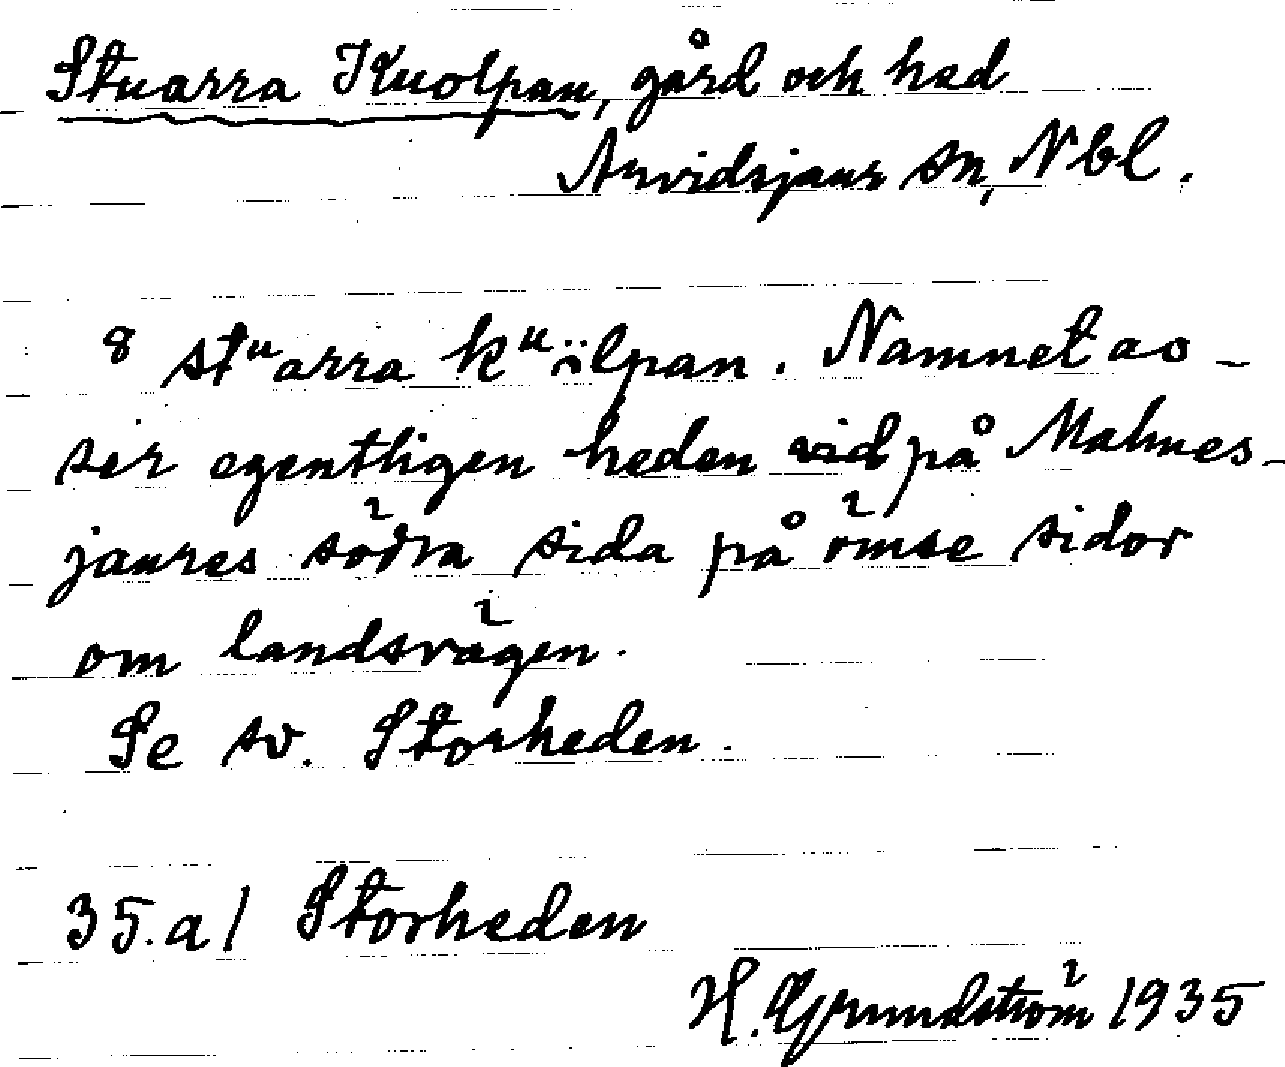 Stuarra Kuolpan, gård och hed
Arvidsjaur sn, Nbl.
8 stᵘarra kᵘälpan. Namnet av-
ser egentligen heden vid på Malmes-
jaures södra sida på ömse sidor
om landsvägen.
Se sv. Storheden.
35.a/ Storheden
H. Grundström 1935